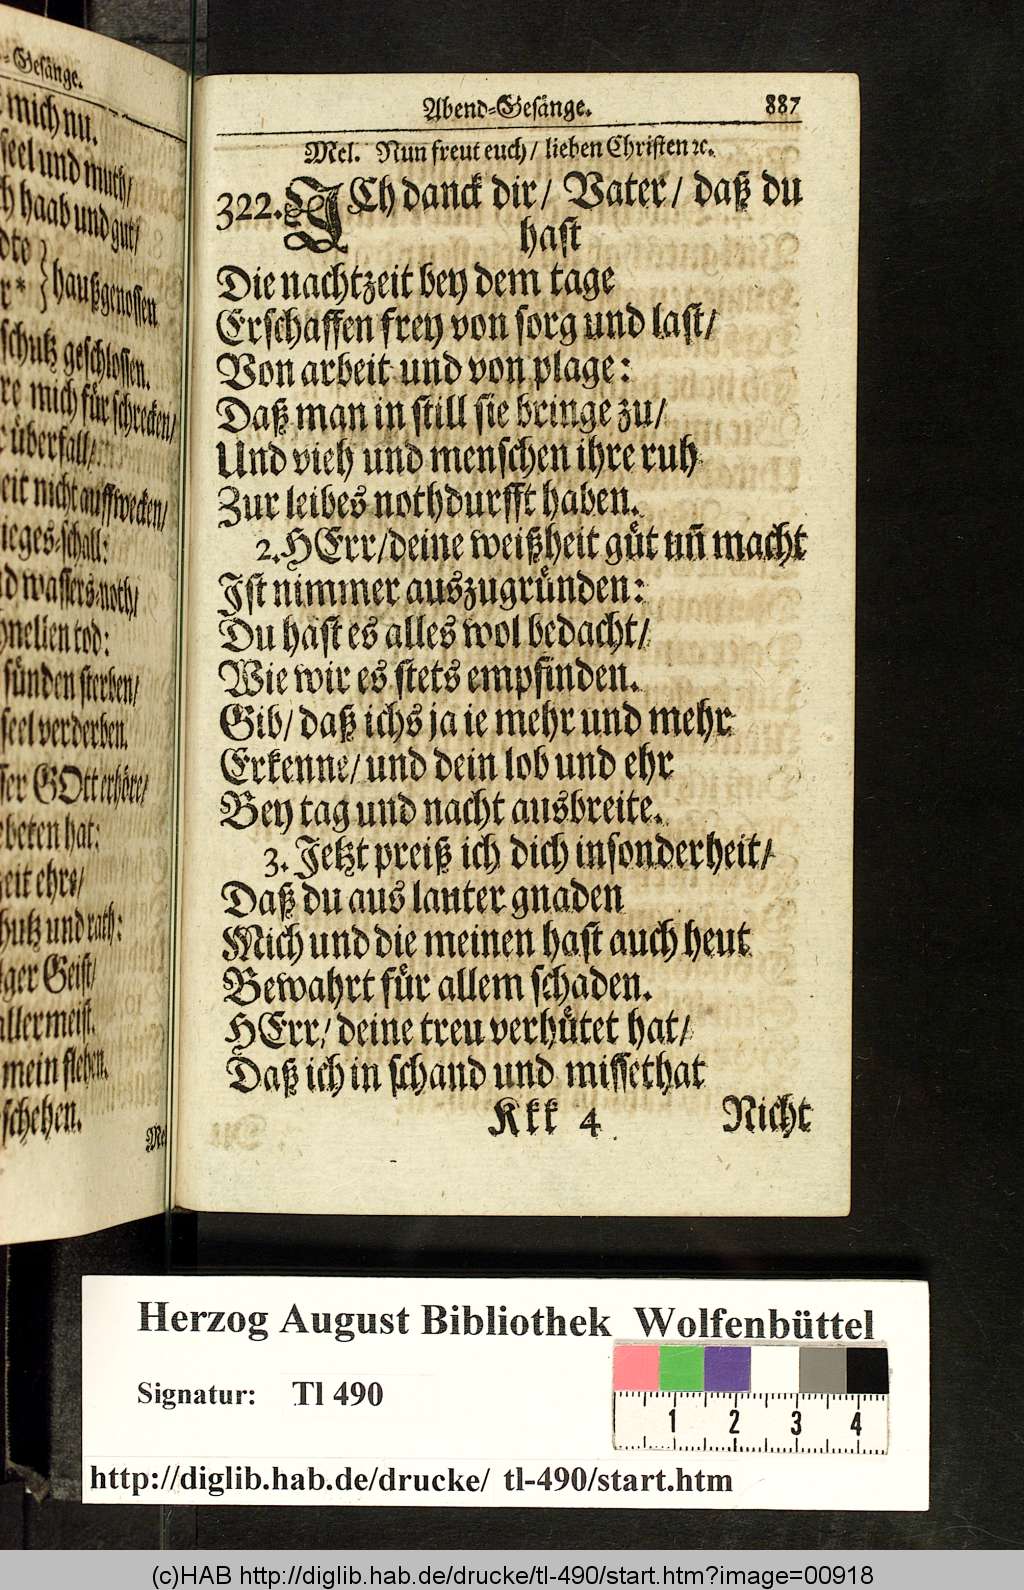 Gesänge.
mich nu.
seel und muth/
haab und gut/
haußgenossen
schutz geschlossen.
mich für schrecken/
überfall/
nicht auffwecken/
schall:
wassers-noth/
tod:
sünden sterben/
seel verderben.
GOtt erhöre/
hat:
ehre/
und rath:
Geist/
allermeist.
mein flehen.
Abend-Gesänge. 887
Mel. Nun freut euch/ lieben Christen ꝛc.
322. JCh danck dir/ Vater/ daß du
hast
Die nachtzeit bey dem tage
Erschaffen frey von sorg und last/
Von arbeit und von plage:
Daß man in still sie bringe zu/
Und vieh und menschen ihre ruh
Zur leibes nothdurfft haben.
2. HErr/deine weißheit guͤt un̄ macht
Ist nimmer auszugruͤnden:
Du hast es alles wol bedacht/
Wie wir es stets empfinden.
Gib/ daß ichs ja ie mehr und mehr
Erkenne/ und dein lob und ehr
Bey tag und nacht ausbreite.
3. Jetzt preiß ich dich insonderheit/
Daß du aus lauter gnaden
Mich und die meinen hast auch heut
Bewahrt fuͤr allem schaden.
HErr/ deine treu verhuͤtet hat/
Daß ich in schand und missethat
Kkk 4 Nicht
Herzog August Bibliothek Wolfenbüttel
Signatur: Tl 490
1 2 3 4
http://diglib.hab.de/drucke/ tl-490/start.htm
(c)HAB http://diglib.hab.de/drucke/tl-490/start.htm?image=00918